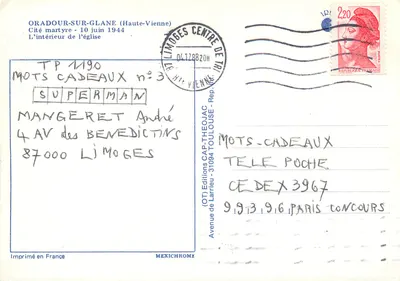 ORADOUR-SUR-GLANE (Haute-Vienne)
Cité martyre - 10 juin 1944
L'intérieur de l'église
TP 1190
MOTS CADEAUX n° 3
SUPERMAN
MANGERET André
4 AV des BENEDICTINS
87000 LIMOGES
Imprimé en France
MEXICHROME
(OT) Editions CAP-THEOJAC
Avenue de Larrieu - 31094 TOULOUSE - Rep.
LIMOGES CENTRE DE TRI
Hte VIENNE
2,20
MOTS-CADEAUX
TELE POCHE
CEDEX 3967
99396 PARIS CONCOURS